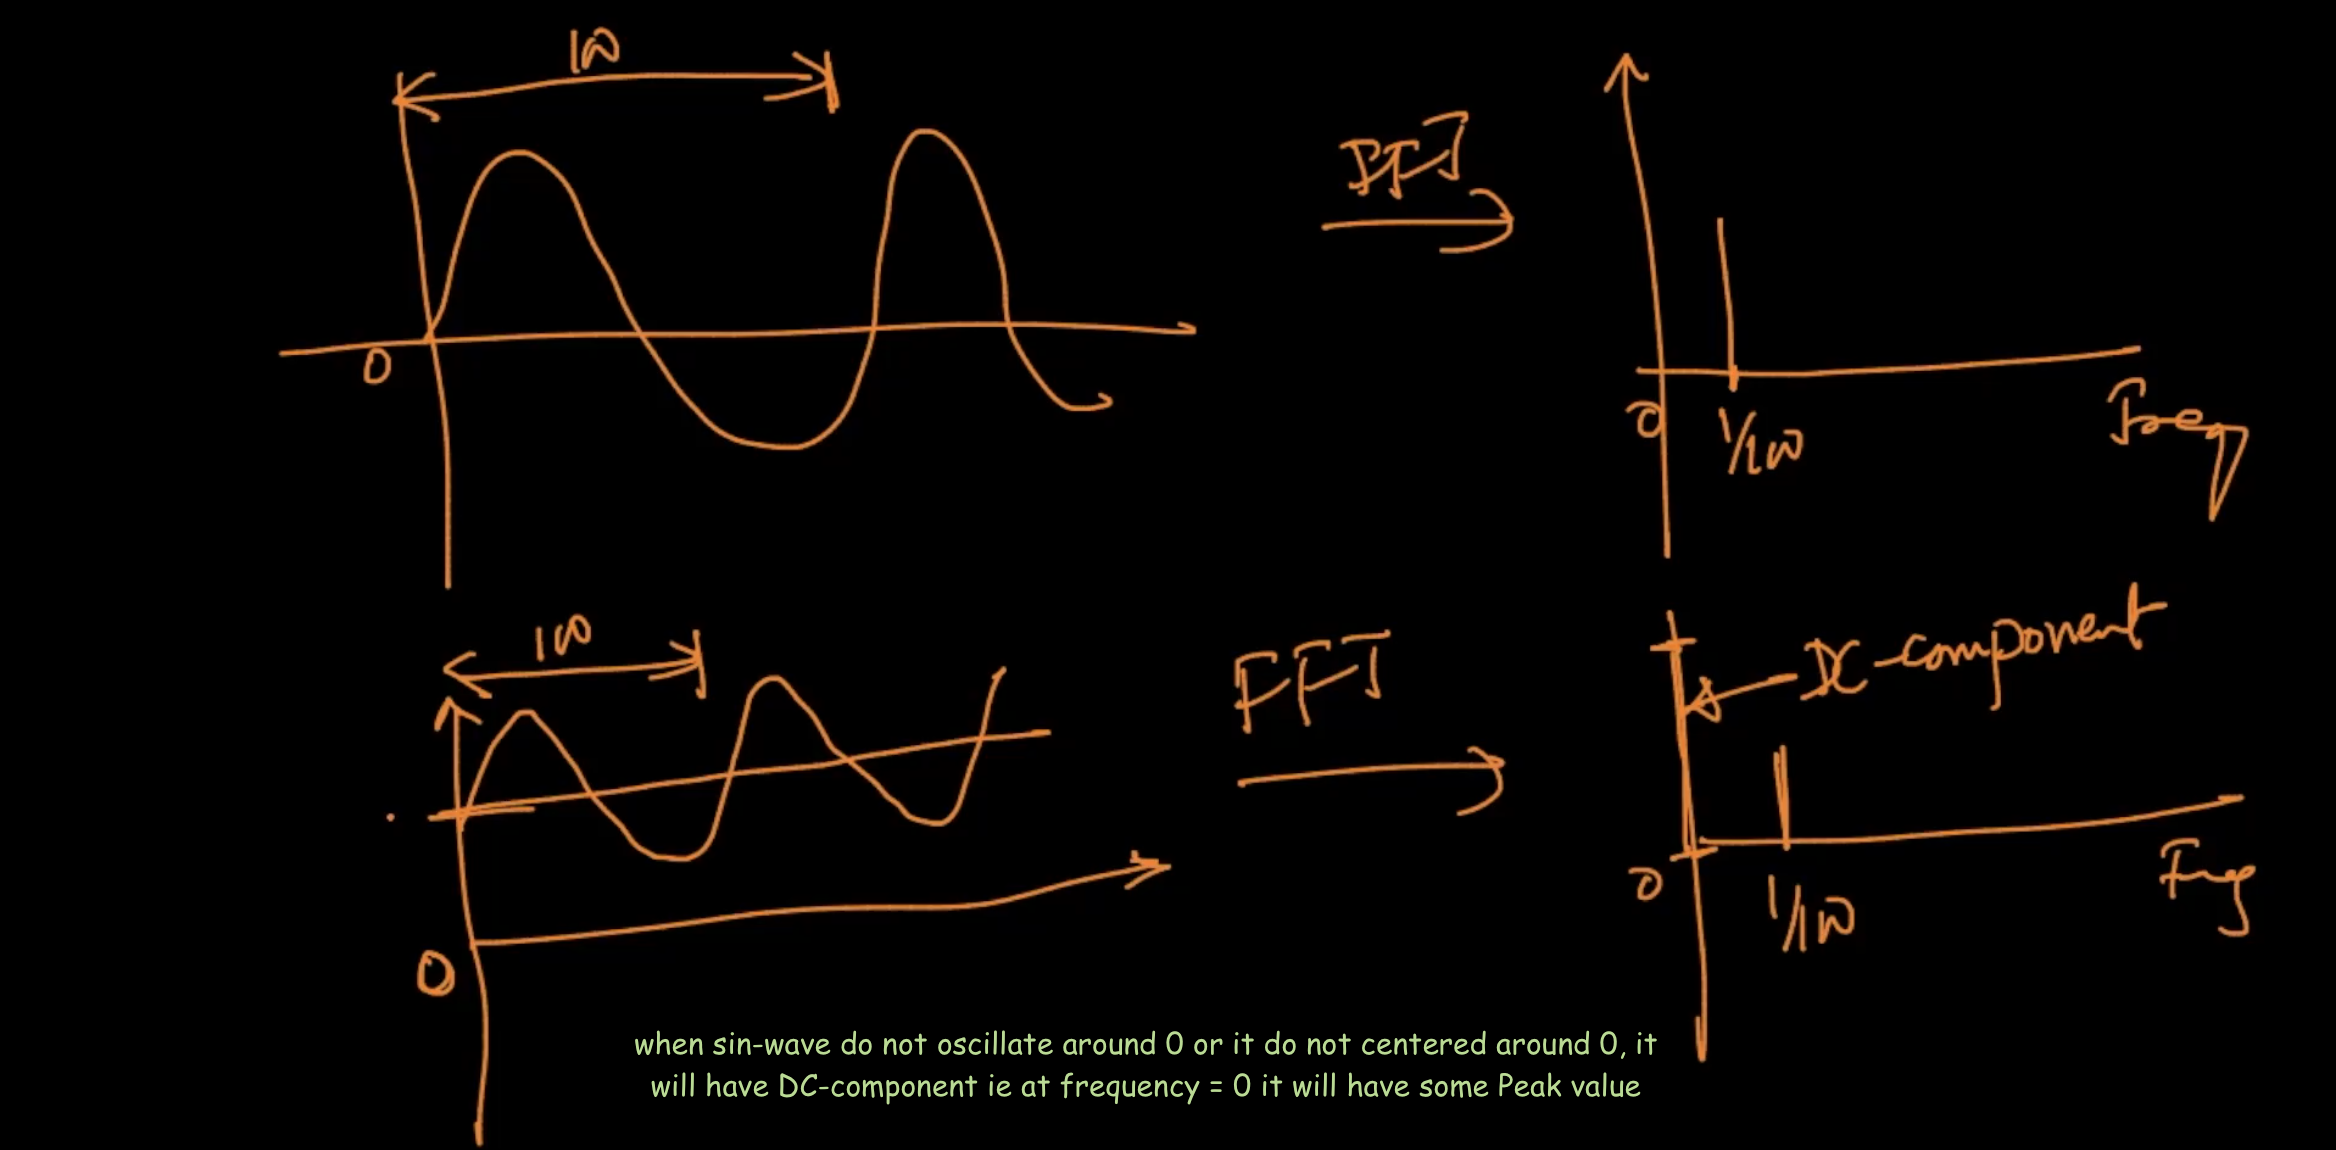 100
DFT
0
0
1/100
Freq
100
FFT
DC-component
0
0
1/100
Freq
when sin-wave do not oscillate around 0 or it do not centered around 0, it
will have DC-component ie at frequency = 0 it will have some Peak value